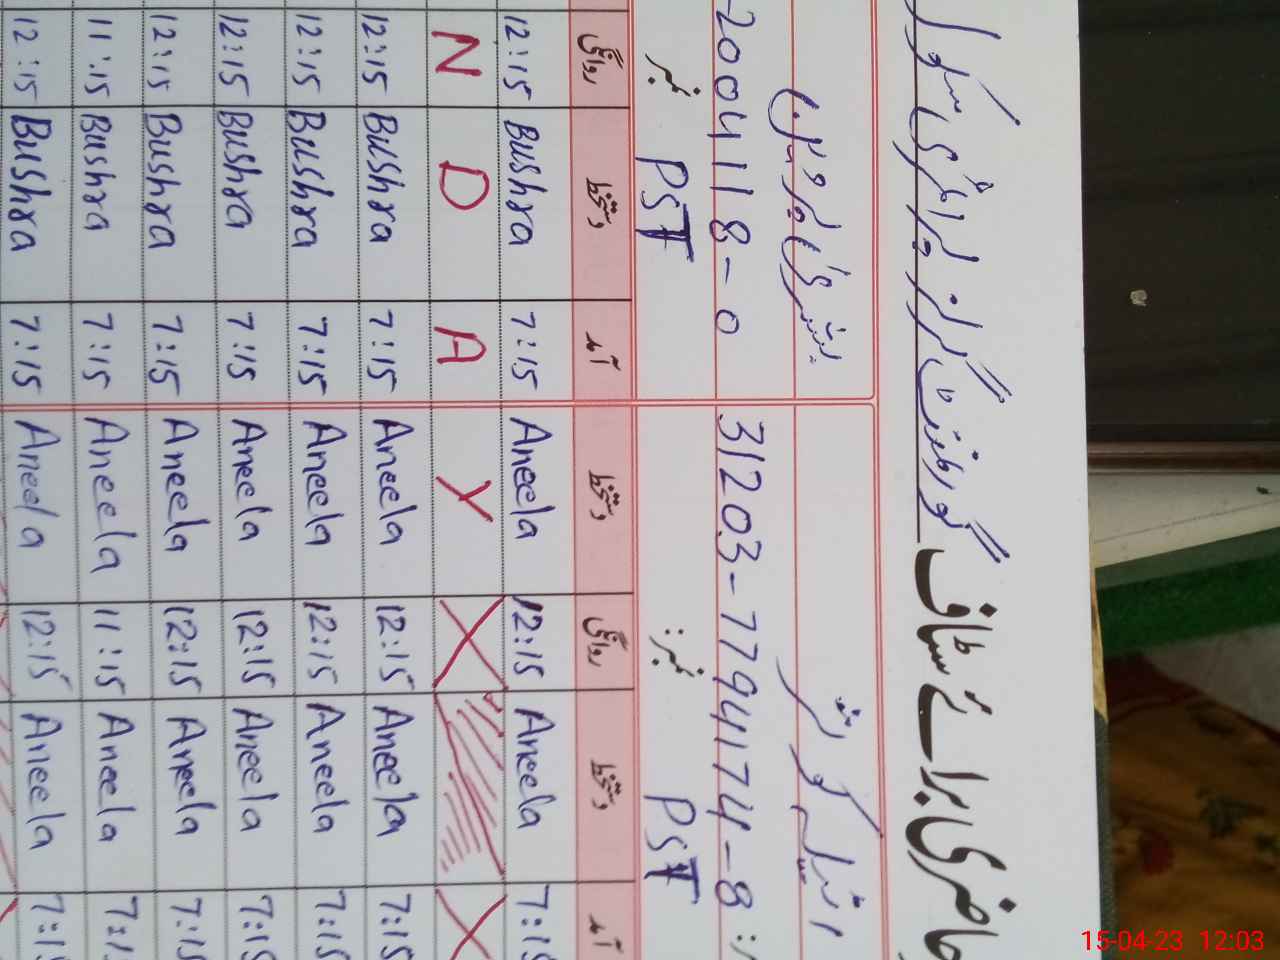 حاضری برائے سٹاف گورنمنٹ گرلز پرائمری سکول
انیلہ کوثر بشریٰ پروین
31203-7794174-8 -2004118-0
نمبر: PST نمبر PST
آمد دستخط روانگی دستخط آمد دستخط روانگی
7:15 Aneela 12:15 Aneela 7:15 Bushra 12:15
Y A D N
7:15 Aneela 12:15 Aneela 7:15 Bushra 12:15
7:15 Aneela 12:15 Aneela 7:15 Bushra 12:15
7:15 Aneela 12:15 Aneela 7:15 Bushra 12:15
7:15 Aneela 12:15 Aneela 7:15 Bushra 12:15
7:15 Aneela 11:15 Aneela 7:15 Bushra 11:15
7:15 Aneela 12:15 Aneela 7:15 Bushra 12:15
15-04-23 12:03